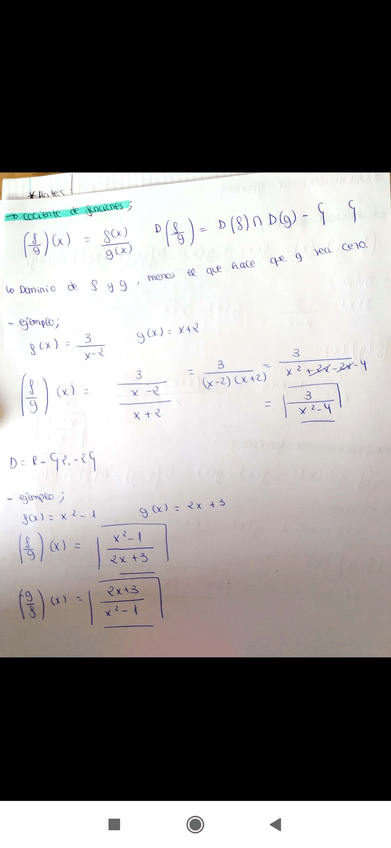 * Mates
→ Cociente de funciones;
(f/g)(x) = f(x)/g(x)   D(f/g) = D(f) ∩ D(g) - {   }
↳ Dominio de f y g, menos el que hace que g sea cero.
- ejemplo;
f(x) = 3/(x-2)   g(x) = x+2
(f/g)(x) = (3/(x-2))/(x+2) = 3/((x-2)(x+2)) = 3/(x²+2x-2x-4)
= 3/(x²-4)
D = R - {2, -2}
- ejemplo;
f(x) = x²-1   g(x) = 2x+3
(f/g)(x) = (x²-1)/(2x+3)
(g/f)(x) = (2x+3)/(x²-1)